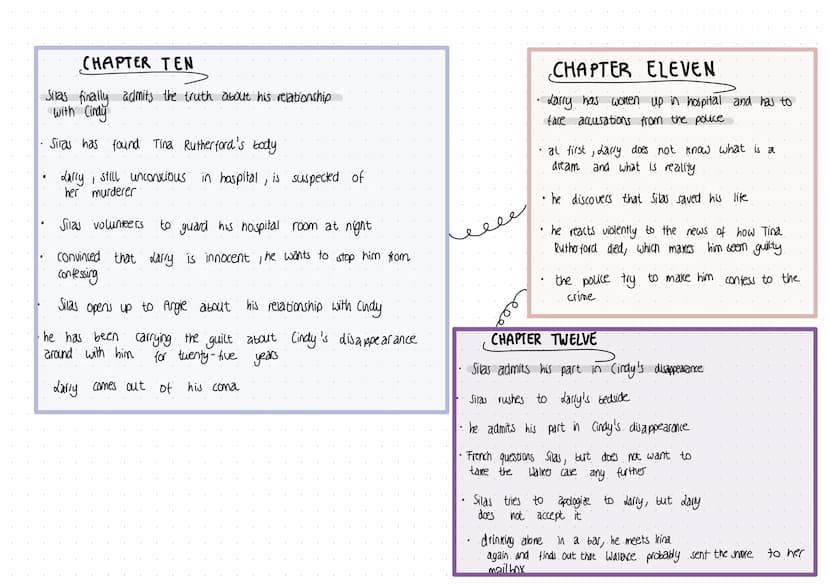 CHAPTER TEN
Silas finally admits the truth about his relationship
with Cindy
· Silas has found Tina Rutherford's body
· Larry, still unconscious in hospital, is suspected of
her murderer
· Silas volunteers to guard his hospital room at night
· convinced that Larry is innocent, he wants to stop him from
confessing
· Silas opens up to Angie about his relationship with Cindy
· he has been carrying the guilt about Cindy's disappearance
around with him for twenty-five years
Larry comes out of his coma
CHAPTER ELEVEN
· Larry has women up in hospital and has to
face accusations from the police
· at first, Larry does not know what is a
dream and what is reality
· he discovers that Silas saved his life
· he reacts violently to the news of how Tina
Rutherford died, which makes him seem guilty
· the police try to make him confess to the
crime
CHAPTER TWELVE
· Silas admits his part in Cindy's disappearance
· Silas rushes to Larry's bedside
· he admits his part in Cindy's disappearance
· French questions Silas, but does not want to
take the Walker case any further
· Silas tries to apologize to Larry, but Larry
does not accept it
· drinking alone in a bar, he meets Irina
again and finds out that Wallace probably sent the snake to her
mailbox